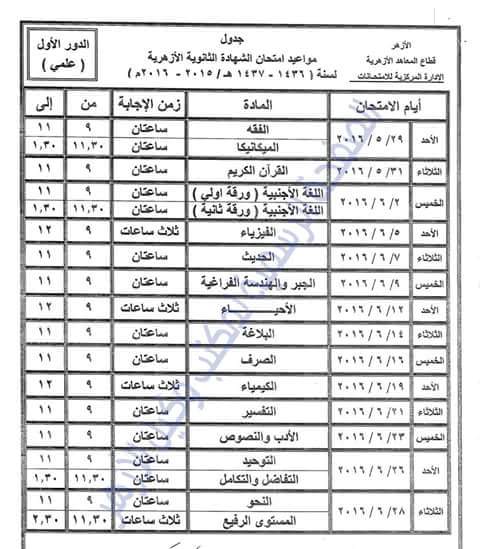 الأزهر
قطاع المعاهد الأزهرية
الادارة المركزية للامتحانات
جدول
مواعيد امتحان الشهادة الثانوية الأزهرية
لسنة ( ١٤٣٦ - ١٤٣٧ هـ / ٢٠١٥ - ٢٠١٦ م )
الدور الأول
( علمي )
أيام الامتحان المادة زمن الإجابة من إلى
الأحد ٢٩ / ٥ / ٢٠١٦ الفقه ساعتان ٩ ١١
الميكانيكا ساعتان ١١,٣٠ ١,٣٠
الثلاثاء ٣١ / ٥ / ٢٠١٦ القرآن الكريم ساعتان ٩ ١١
الخميس ٢ / ٦ / ٢٠١٦ اللغة الأجنبية ( ورقة اولي ) ساعتان ٩ ١١
اللغة الأجنبية ( ورقة ثانية ) ساعتان ١١,٣٠ ١,٣٠
الأحد ٥ / ٦ / ٢٠١٦ الفيزياء ثلاث ساعات ٩ ١٢
الثلاثاء ٧ / ٦ / ٢٠١٦ الحديث ساعتان ٩ ١١
الخميس ٩ / ٦ / ٢٠١٦ الجبر والهندسة الفراغية ساعتان ٩ ١١
الأحد ١٢ / ٦ / ٢٠١٦ الأحيـــاء ثلاث ساعات ٩ ١٢
الثلاثاء ١٤ / ٦ / ٢٠١٦ البلاغة ساعتان ٩ ١١
الخميس ١٦ / ٦ / ٢٠١٦ الصرف ساعتان ٩ ١١
الأحد ١٩ / ٦ / ٢٠١٦ الكيمياء ثلاث ساعات ٩ ١٢
الثلاثاء ٢١ / ٦ / ٢٠١٦ التفسير ساعتان ٩ ١١
الخميس ٢٣ / ٦ / ٢٠١٦ الأدب والنصوص ساعتان ٩ ١١
الأحد ٢٦ / ٦ / ٢٠١٦ التوحيد ساعتان ٩ ١١
التفاضل والتكامل ساعتان ١١,٣٠ ١,٣٠
الثلاثاء ٢٨ / ٦ / ٢٠١٦ النحو ساعتان ٩ ١١
المستوى الرفيع ثلاث ساعات ١١,٣٠ ٢,٣٠